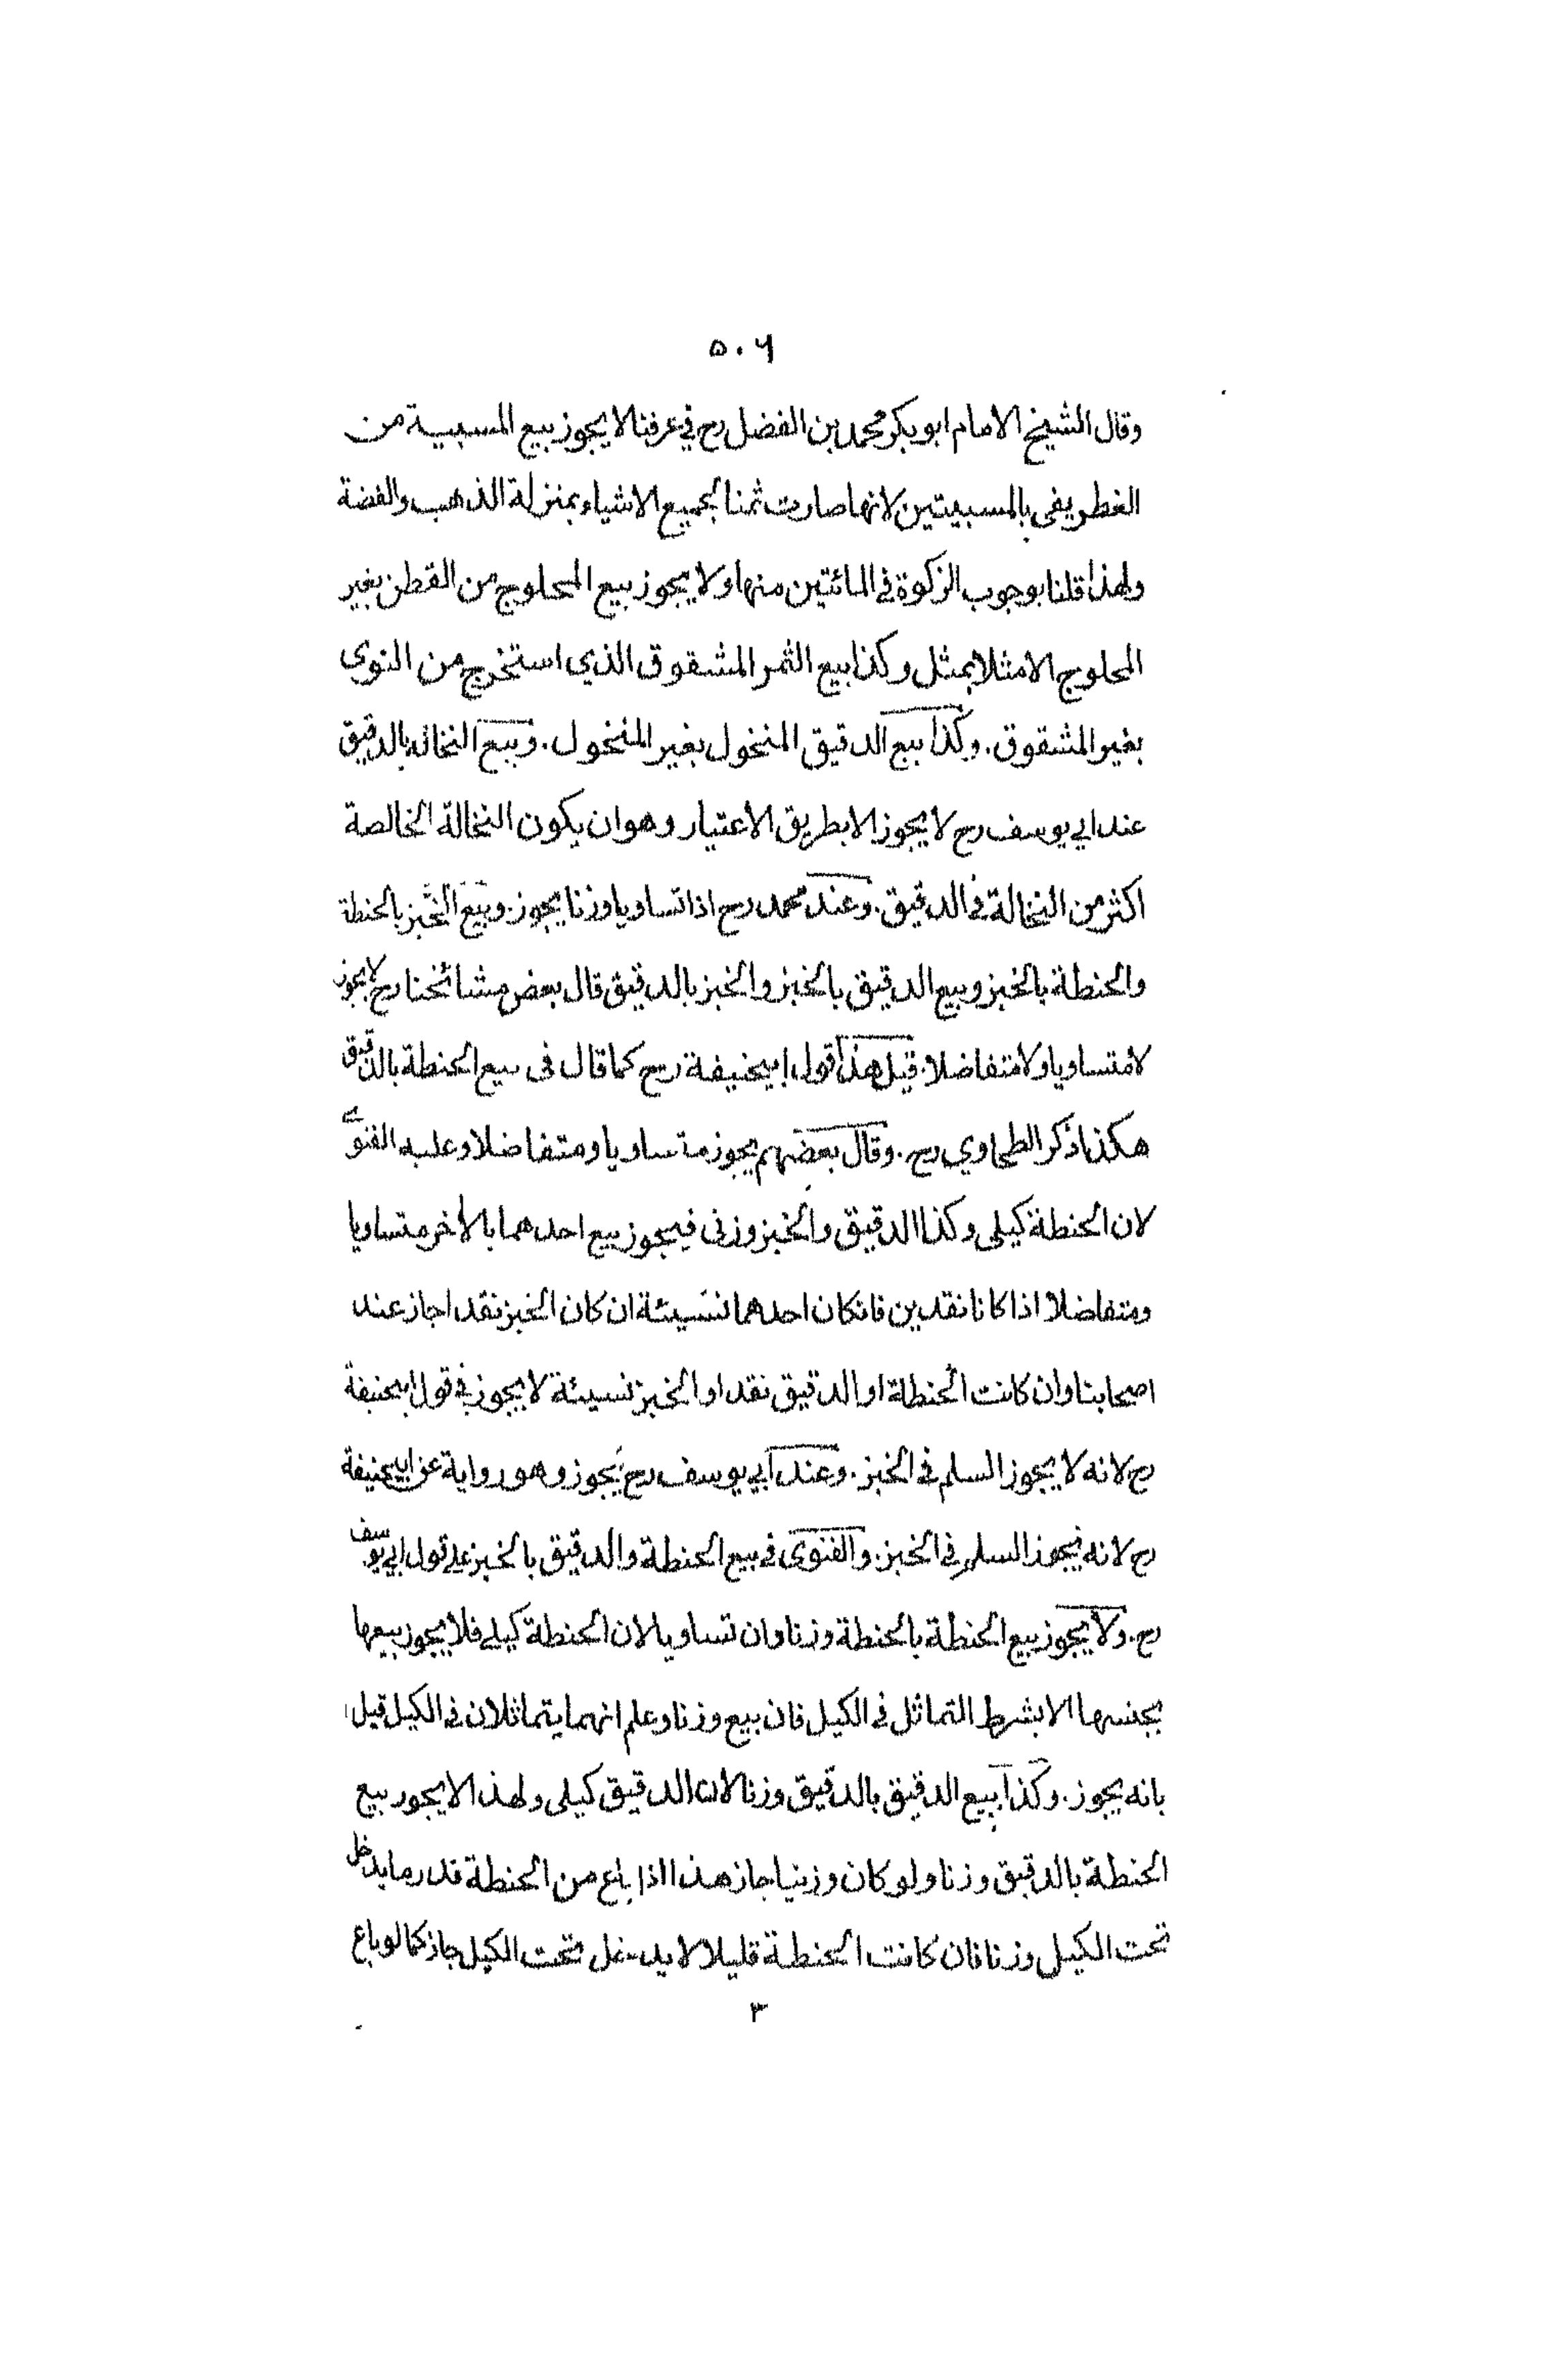 ٥٠٦
وقال الشيخ الامام ابو بكر محمد بن الفضل رح في عرفنا لا يجوز بيع المسبية من
الغطريفى بالمسبيتين لانها صارت ثمنا لجميع الاشياء بمنزلة الذهب والفضة
ولهذا قلنا بوجوب الزكوة في المائتين منها ولا يجوز بيع المحلوج من القطن بغير
المحلوج الا مثلا بمثل وكذا بيع الثمر المشقوق الذي استخرج من النوى
بغير المشقوق. وكذا بيع الدقيق المنخول بغير المنخول. وبيع النخالة بالدقيق
عند ابي يوسف رح لا يجوز الا بطريق الاعتبار وهو ان يكون النخالة الخالصة
اكثر من النخالة في الدقيق. وعند محمد رح اذا تساويا وزنا يجوز. وبيع الخبز بالحنطة
والحنطة بالخبز وبيع الدقيق بالخبز والخبز بالدقيق قال بعض مشائخنا رح لا يجوز
لا متساويا ولا متفاضلا. قيل هذا قول ابيحنيفة رح كما قال فى بيع الحنطة بالدقيق
هكذا ذكر الطحاوي رح. وقال بعضهم يجوز متساويا ومتفاضلا وعليه الفتوى
لان الحنطة كيلى وكذا الدقيق والخبز وزنى فيجوز بيع احدهما بالاخر متساويا
ومتفاضلا اذا كانا نقدين فانكان احدهما نسيئة ان كان الخبز نقدا جاز عند
اصحابنا وان كانت الحنطة او الدقيق نقدا والخبز نسيئة لا يجوز في قول ابيحنيفة
رح لانه لا يجوز السلم في الخبز. وعند ابي يوسف رح يجوز وهو رواية عن ابيحنيفة
رح لانه يجوز السلم في الخبز. والفتوى في بيع الحنطة والدقيق بالخبز على قول ابي يوسف
رح. ولا يجوز بيع الحنطة بالحنطة وزنا وان تساويا لان الحنطة كيلي فلا يجوز بيعها
بجنسها الا بشرط التماثل في الكيل فان بيع وزنا وعلم انهما يتماثلان في الكيل قيل
بانه يجوز. وكذا بيع الدقيق بالدقيق وزنا لان الدقيق كيلى ولهذا لا يجوز بيع
الحنطة بالدقيق وزنا ولو كان وزنيا جاز هذا اذا باع من الحنطة قدر ما يدخل
تحت الكيل وزنا فان كانت الحنطة قليلا لا يدخل تحت الكيل جاز كما لو باع
٣